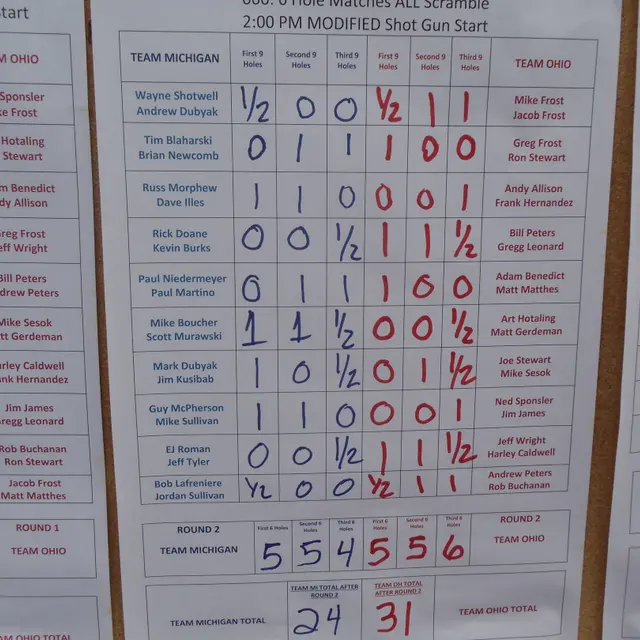 000: 6 Hole Matches ALL Scramble
2:00 PM MODIFIED Shot Gun Start
TEAM MICHIGAN First 9 Holes Second 9 Holes Third 9 Holes First 9 Holes Second 9 Holes Third 9 Holes TEAM OHIO
Wayne Shotwell
Andrew Dubyak
1/2 0 0 1/2 1 1
Mike Frost
Jacob Frost
Tim Blaharski
Brian Newcomb
0 1 1 1 0 0
Greg Frost
Ron Stewart
Russ Morphew
Dave Illes
1 1 0 0 0 1
Andy Allison
Frank Hernandez
Rick Doane
Kevin Burks
0 0 1/2 1 1 1/2
Bill Peters
Gregg Leonard
Paul Niedermeyer
Paul Martino
0 1 1 1 0 0
Adam Benedict
Matt Matthes
Mike Boucher
Scott Murawski
1 1 1/2 0 0 1/2
Art Hotaling
Matt Gerdeman
Mark Dubyak
Jim Kusibab
1 0 1/2 0 1 1/2
Joe Stewart
Mike Sesok
Guy McPherson
Mike Sullivan
1 1 0 0 0 1
Ned Sponsler
Jim James
EJ Roman
Jeff Tyler
0 0 1/2 1 1 1/2
Jeff Wright
Harley Caldwell
Bob Lafreniere
Jordan Sullivan
1/2 0 0 1/2 1 1
Andrew Peters
Rob Buchanan
ROUND 2 First 6 Holes Second 6 Holes Third 6 Holes First 6 Holes Second 6 Holes Third 6 Holes ROUND 2
TEAM MICHIGAN 5 5 4 5 5 6 TEAM OHIO
TEAM MI TOTAL AFTER
ROUND 2
TEAM OH TOTAL
AFTER ROUND 2
TEAM MICHIGAN TOTAL 24 31 TEAM OHIO TOTAL
start
M OHIO
Sponsler
ke Frost
Hotaling
Stewart
m Benedict
dy Allison
reg Frost
eff Wright
Bill Peters
drew Peters
Mike Sesok
t Gerdeman
arley Caldwell
nk Hernandez
Jim James
regg Leonard
Rob Buchanan
Ron Stewart
Jacob Frost
Matt Matthes
ROUND 1
TEAM OHIO
AM OHIO TOTAL